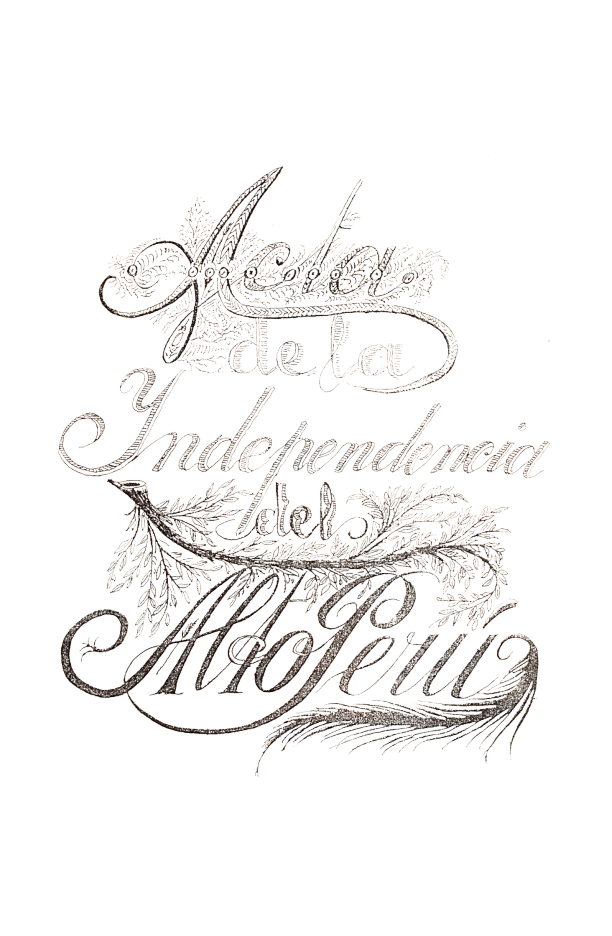 Acta
de la
Independencia
del
Alto Perú